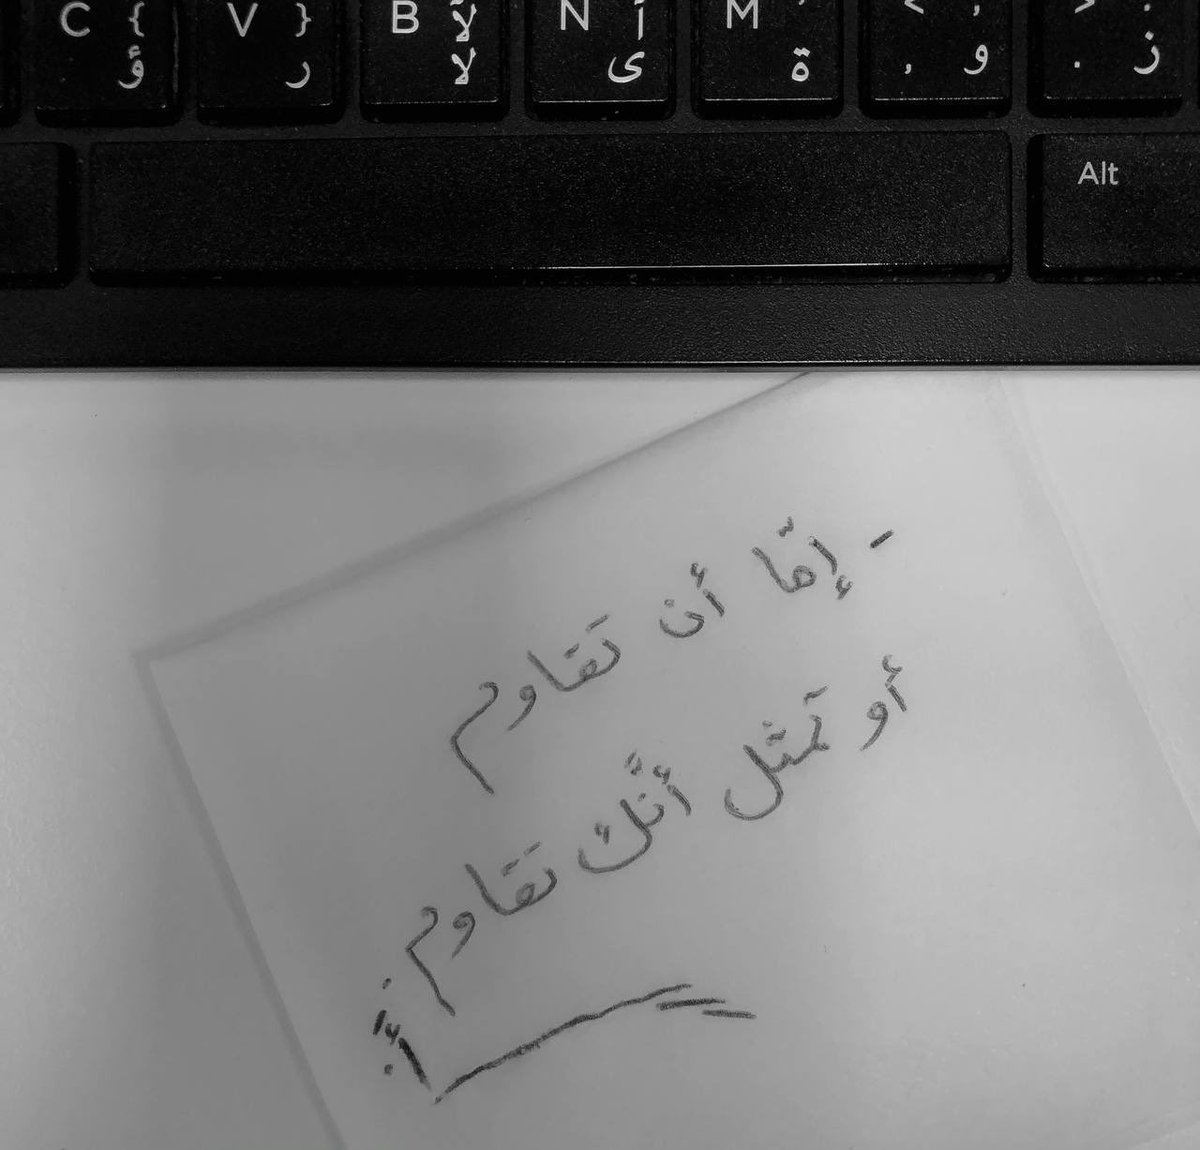 C { ؤ V } ر B لآ لا N آ ى M ' ة < , و > . ز
Alt
- إمّا أن تقاوم
أو تمثل أنَّك تقاوم.